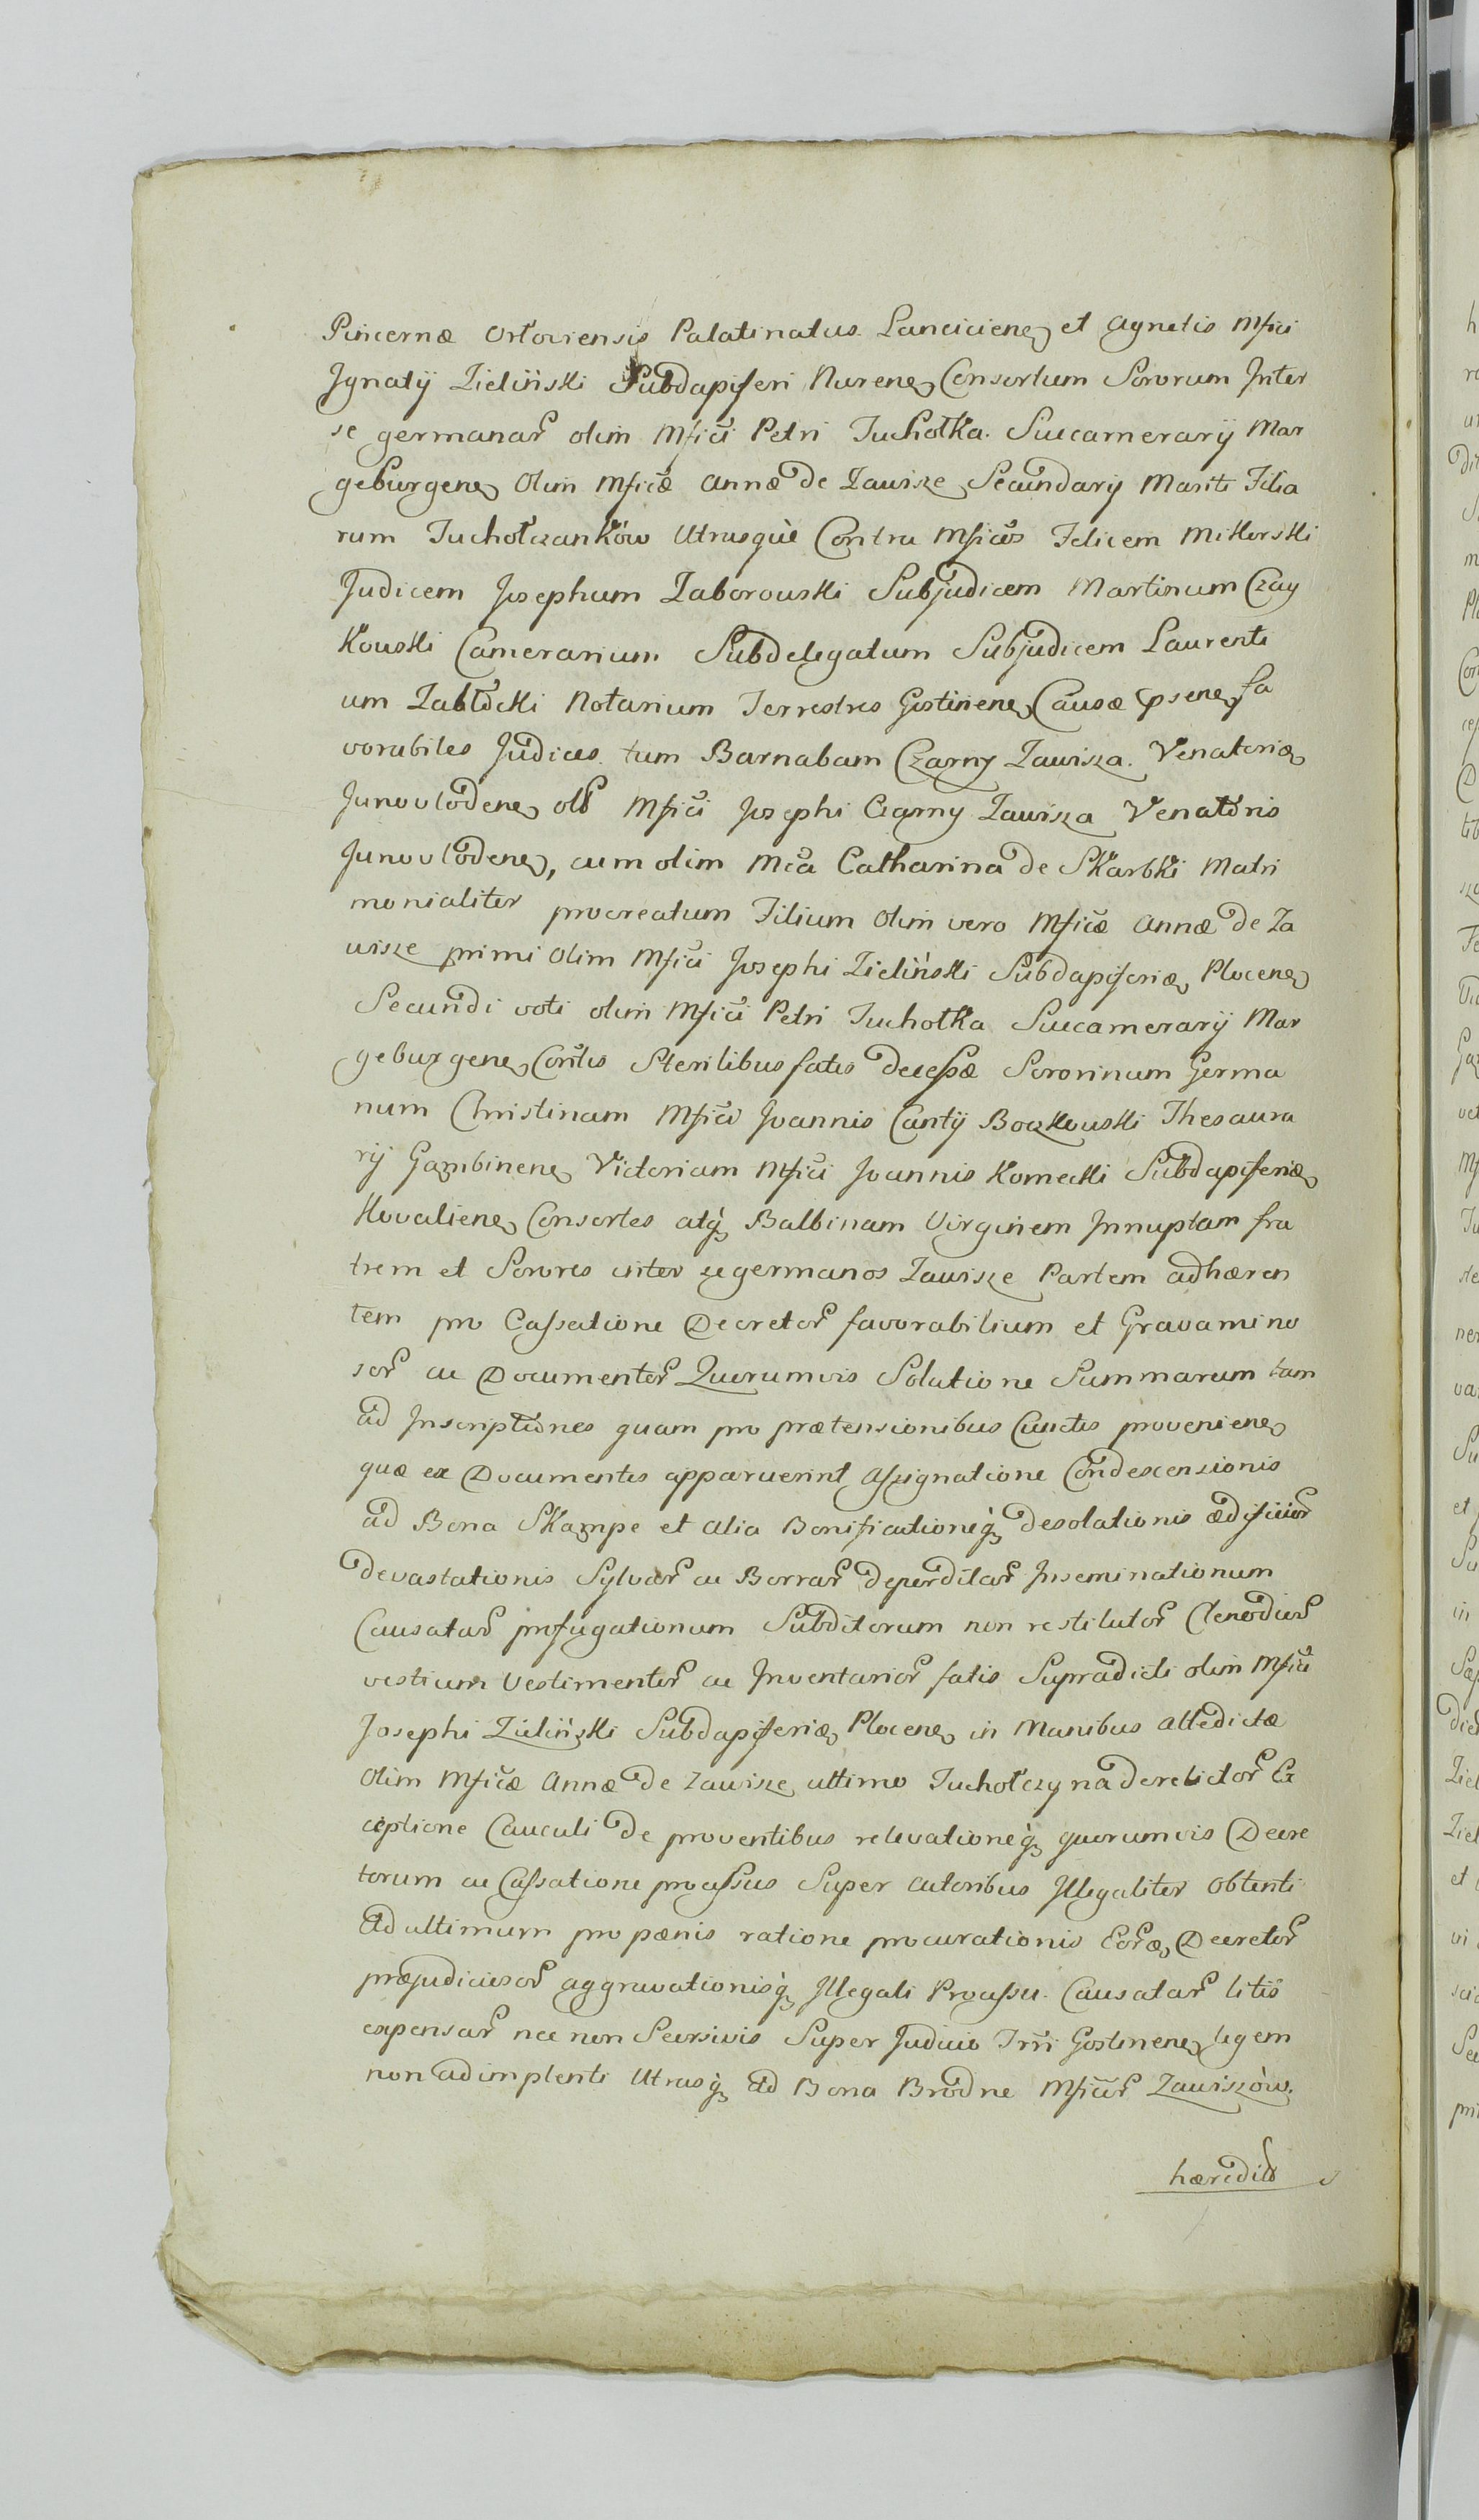 Pincernæ Orłoviensis Palatinatus Lanciciene et Agnetis Mfici
Ignatij Zieliński Subdapiferi Nurene Consortum Sororum Inter
se germanar olim Mfici Petri Tuchołka Succamerarij Mar
geburgene Olim Mficæ Annæ de Zawisze Secundarij Mariti Filia
rum Tuchołczanków Utrusquè Contra Mficos Felicem Mikorski
Judicem Josephum Zaborowski Subjudicem Martinum Czay
kowski Camerarium Subdelegatum Subjudicem Laurenti
um Zabłocki Notarium Terrestres Gostinene Causæ Ppsene fa
vorabiles Judices tum Barnabam Czarny Zawisza Venatoriæ
Junovlodene olb Mfici Josephi Czarny Zawisza Venatoris
Junovlodene, cum olim Mca Catharina de Skarbki Matri
monialiter procreatum Filium Olim vero Mficæ Annæ de Za
wisze primi Olim Mfici Josephi Zieliński Subdapiferiæ Plocene
Secundi voti olim Mfici Petri Tuchołka Succamerarij Mar
geburgene Contis Sterilibus fatis decessæ Sororinum Germa
num Christinam Mfici Joannis Cantij Boczkowski Thesaura
rij Gąmbinene Victoriam Mfici Joannis Kornecki Subdapiferiæ
Kovaliene Consortes atq Balbinam Virginem Innuptam fra
trem et Sorores inter se germanos Zawisze Partem adhæren
tem pro Cassatione Decretor favorabilium et Gravamino
sor ac Documentor Quorumvis Solutione Summarum tam
ad Inscriptiones quam pro prætensionibus Cunctis proveniene
quæ ex Documentis apparuerint Assignatione Condescensionis
ad Bona Skąmpe et alia Bonificationeq desolationis ædificior
devastationis Sylvar ac Borrar deperditar Inseminationum
Causatar profugationum Subditorum non restitutor Clenodior
vestium Vestimentor ac Inventarior fatis Supradicti olim Mfici
Josephi Zieliński Subdapiferiæ Plocene in Manibus attedictæ
Olim Mficæ Annæ de Zawisze ultimo Tuchołczyna derelictor Ex
ceptione Cauculi de proventibus relevationeq quorumvis Decre
torum ac Cassatione processus Super actoribus Illegaliter Obtenti
Ad ultimum pro pænis ratione procurationis Eoræ Decretor
præjudiciosor aggravationisq Illegali Processu Causatar litis
expensar nec non Seorsivis Super Judicio Trri Gostinene legem
non adimplenti Utrusq Ad Bona Brodne Mficor Zawiszów
hæredit